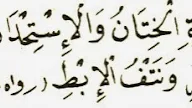 الْخِتَانُ وَالْاِسْتِحْدَا
وَنَتْفُ الْإِبْطِ (رواه